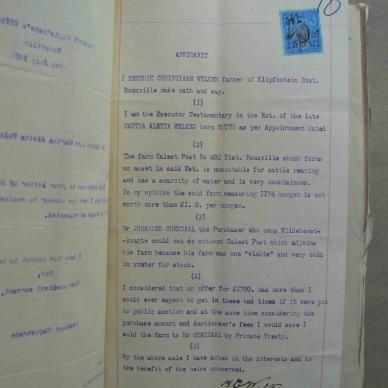 10
AFFIDAVIT
I HENDRIK CHRISTIAAN WELKEN farmer of Klipfontein Dist.
Rouxville make oath and say.
(1)
I am the Executor Testamentary in the Est. of the late
MARTHA ALETTA WELKEN born SMITH as per Appointment dated
(2)
The farm Calest Post No 402 Dist. Rouxville which forms
an asset in said Est. is unsuitable for cattle rearing
and has a scarcity of water and is very mountainous.
In my opinion the said farm measuring 1174 morgen is not
worth more than £1. 5. per morgen.
(3)
Mr JOHANNES ODENDAAL the Purchaser who owns Wildebeest-
laagte could not do without Calest Post which adjoins
his farm because his farm was one "vlakte" and very cold
in winter for stock.
(4)
I considered that an offer for £1700. was more than I
could ever expect to get in these bad times if it were put
to public auction and at the same time considering the
purchase amount and Auctioneer's fees I would save I
sold the farm to Mr ODENDAAL by Private Treaty.
(5)
By the above sale I have acted in the interests and to
the benefit of the heirs concerned.
Resident Magistrate's Office
Rouxville
Martha Aletta
Resident Magistrate